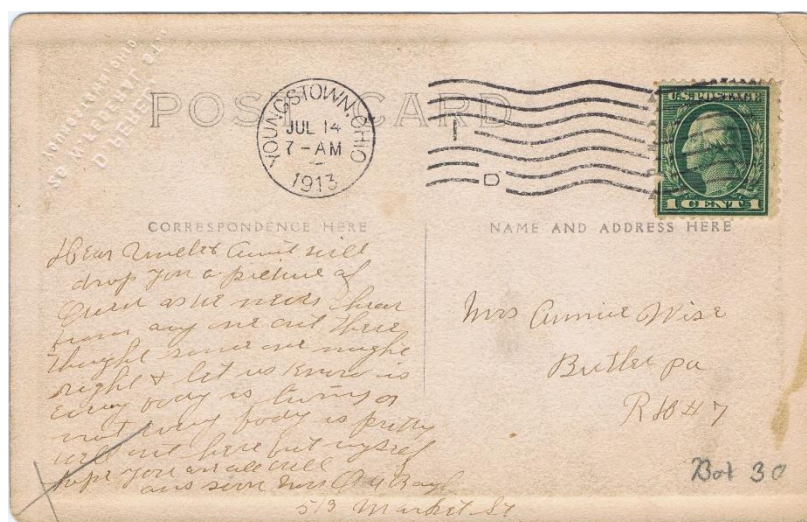 POST CARD
YOUNGSTOWN, OHIO
JUL 14
7-AM
1913
U.S. POSTAGE
1 CENT 1
CORRESPONDENCE HERE
NAME AND ADDRESS HERE
Dear Uncle & Aunt will
drop you a picture of
as we never hear
from any one out there
thought some one might
right & let us know is
every body is living or
not every body is pretty
well out here but myself
hope you are all well
ans soon Mrs
513 Market St
Mrs Annie Wise
Butler pa
R D # 7
Bot 30